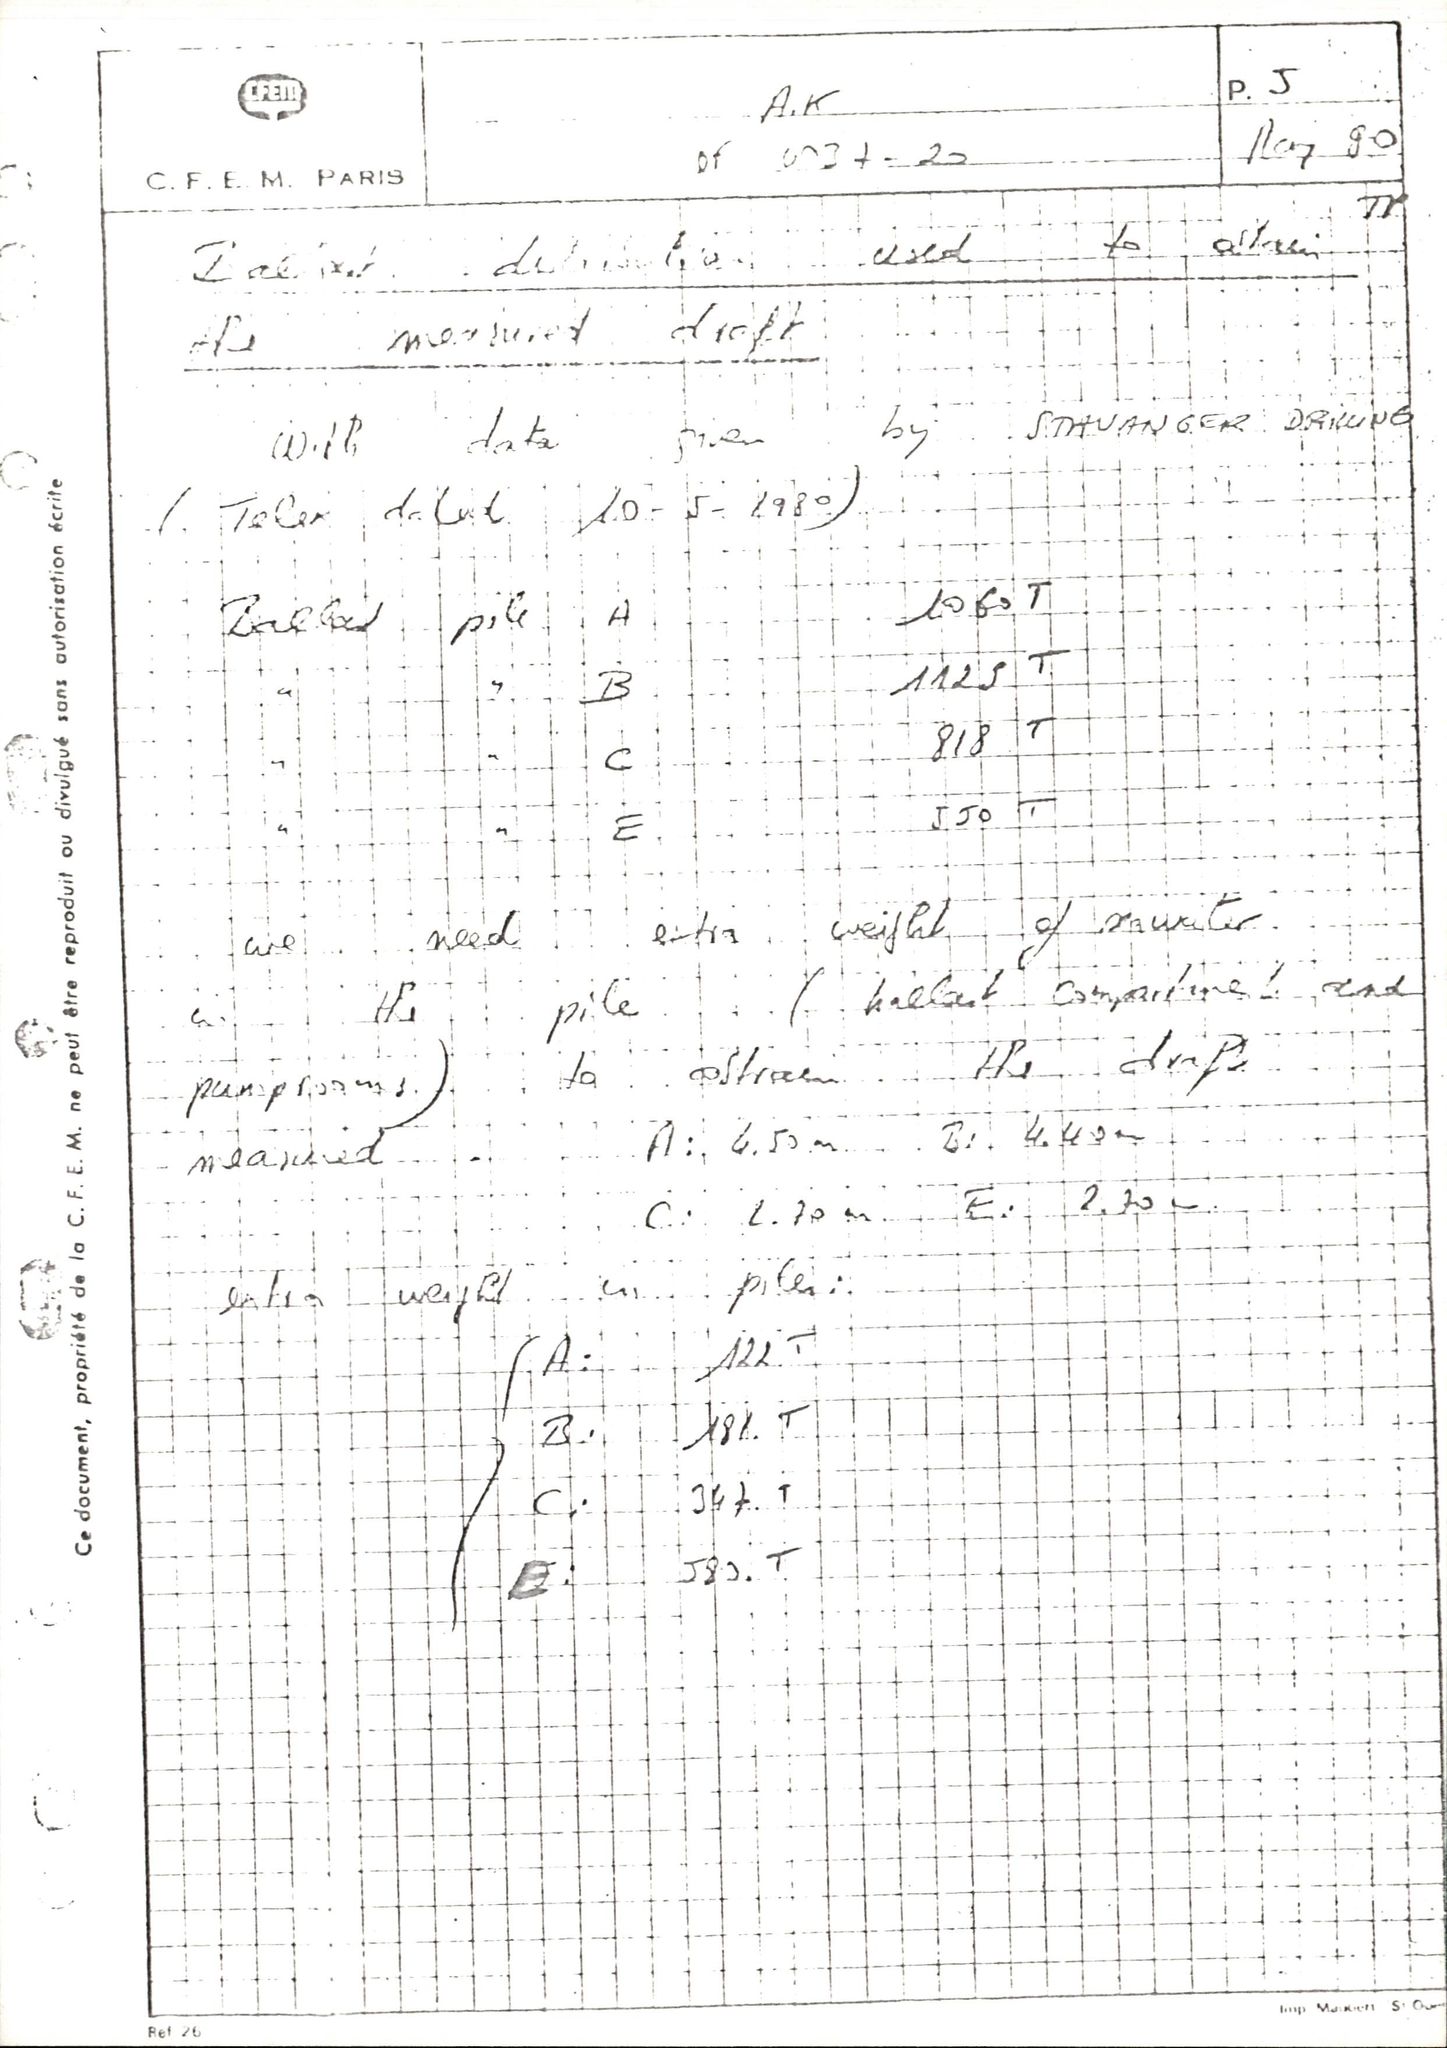 CFEM
C. F. E. M. PARIS
A.K
Of 4037-20
P. 5
May 80
Ballast distribution used to obtain
the measured draft
With data given by STAVANGER DRILLING
( Telex dated 10-5-1980)
Ballast pile A 1060 T
" " B 1125 T
" " C 818 T
" " E 550 T
we need extra weight of
in the pile ( ballast compartment and
pumprooms) to obtain the draft
measured A: 4.50 m B: 4.40 m
C: 2.70 m E: 2.70 m
extra weight in piles:
A: 122 T
B: 181. T
C: 347. T
E: T
Ce document, propriété de la C. F. E. M. ne peut être reproduit ou divulgué sans autorisation écrite
Ref 26
Imp Mauduit St Ouen